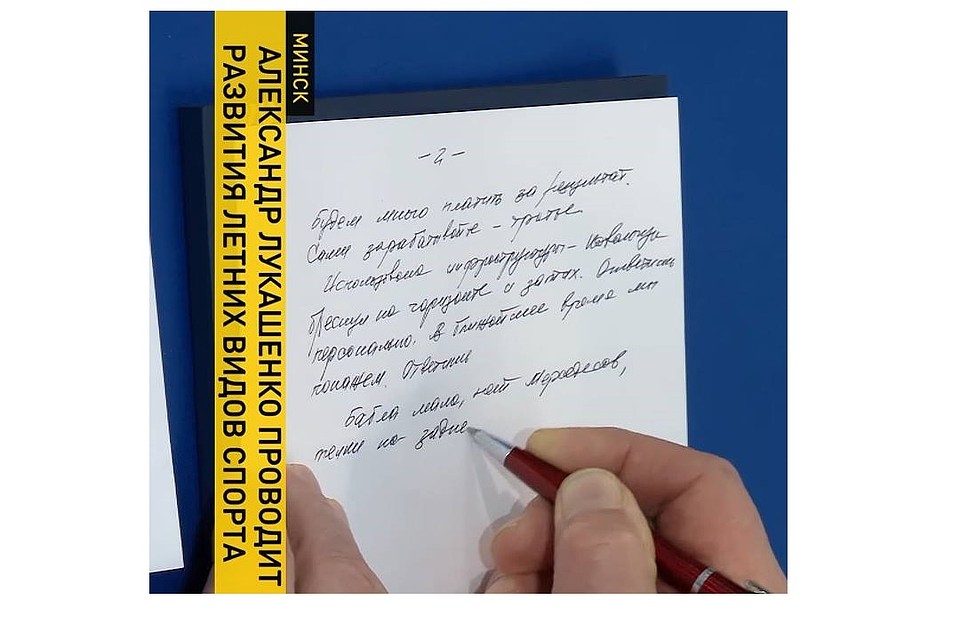 МИНСК
АЛЕКСАНДР ЛУКАШЕНКО ПРОВОДИТ
РАЗВИТИЯ ЛЕТНИХ ВИДОВ СПОРТА
-2-
Будем много платить за результат.
Сами зарабатывайте - третье.
инфраструктуры -
на горизонте и затих. Ответить
персонально. В ближайшее время мы
покажем. Ответить
Бабла мало, нет Мерседесов,
телки по- задне